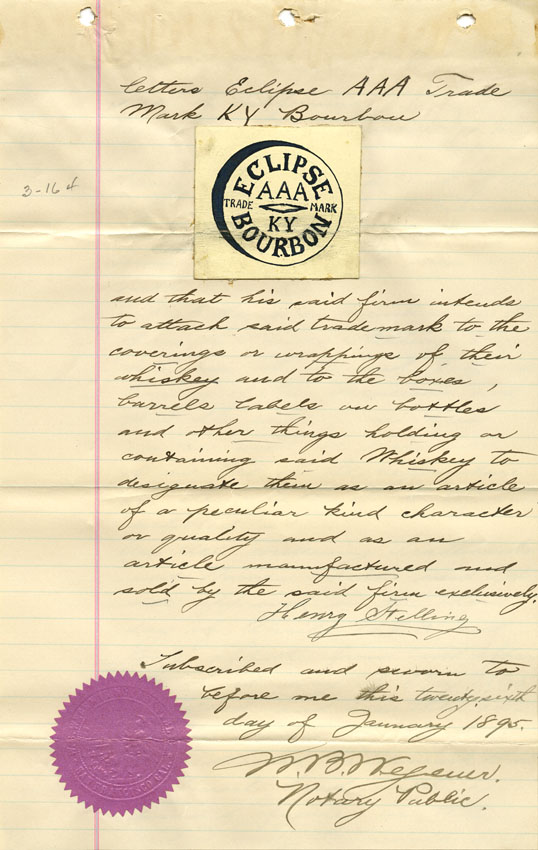 letters Eclipse AAA Trade
Mark KY Bourbon
3-16
ECLIPSE
AAA
TRADE MARK
KY
BOURBON
and that his said firm intends
to attach said trademark to the
coverings or wrappings of their
whiskey and to the boxes,
barrels labels on bottles
and other things holding or
containing said Whiskey to
designate them as an article
of a peculiar kind character
or quality and as an
article manufactured and
sold by the said firm exclusively.
Henry Stelling
Subscribed and sworn to
before me this twenty sixth
day of January 1895.
Notary Public.